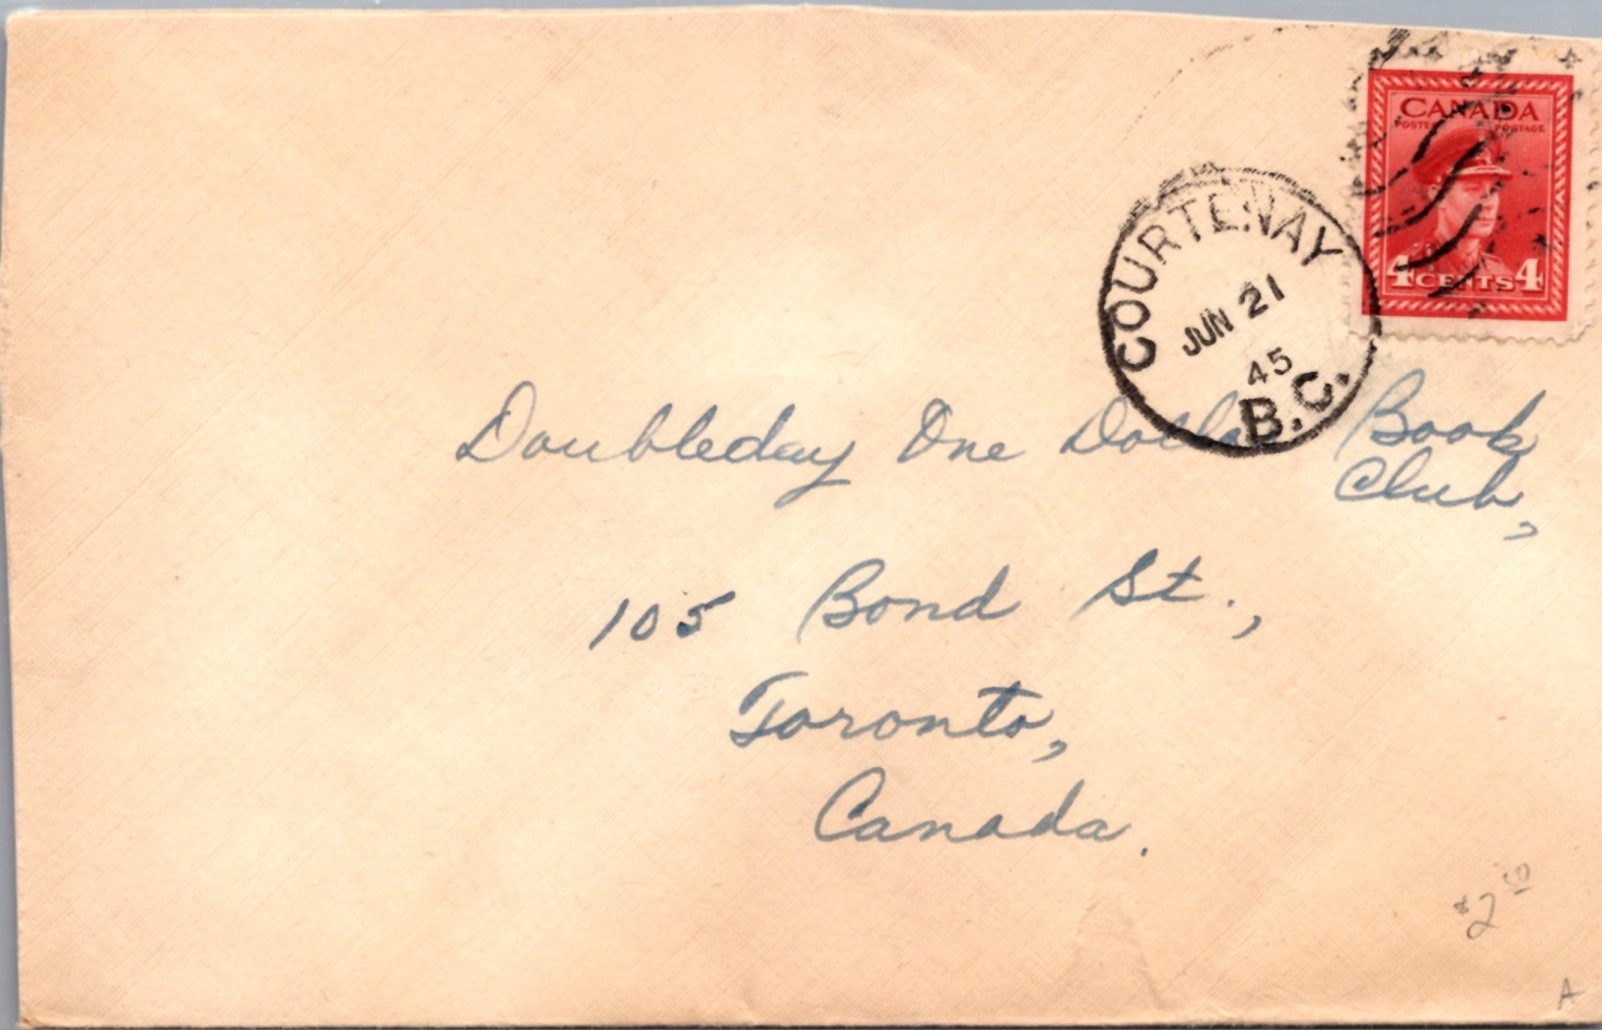 CANADA
POSTES POSTAGE
4 CENTS 4
COURTENAY
JUN 21
45
B.C.
Doubleday One Dollar Book
Club,
105 Bond St.,
Toronto,
Canada.
$2.50
A